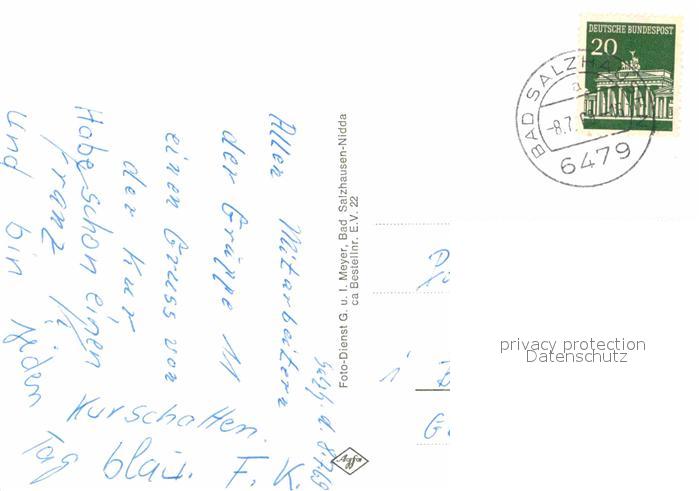 DEUTSCHE BUNDESPOST
20
BAD SALZHAUSEN
a
-8.7.69
6479
Salzh. d. 8.7.69
Allen Mitarbeitern
der Gruppe 11
einen Gruss von
der Kur,
Franz K.
Habe schon einen
Kurschatten.
und bin jeden
Tag blau. F. K.
Foto-Dienst G. u. I. Meyer, Bad Salzhausen-Nidda
ca Bestellnr. E.V. 22
Agfa
i
G
privacy protection
Datenschutz